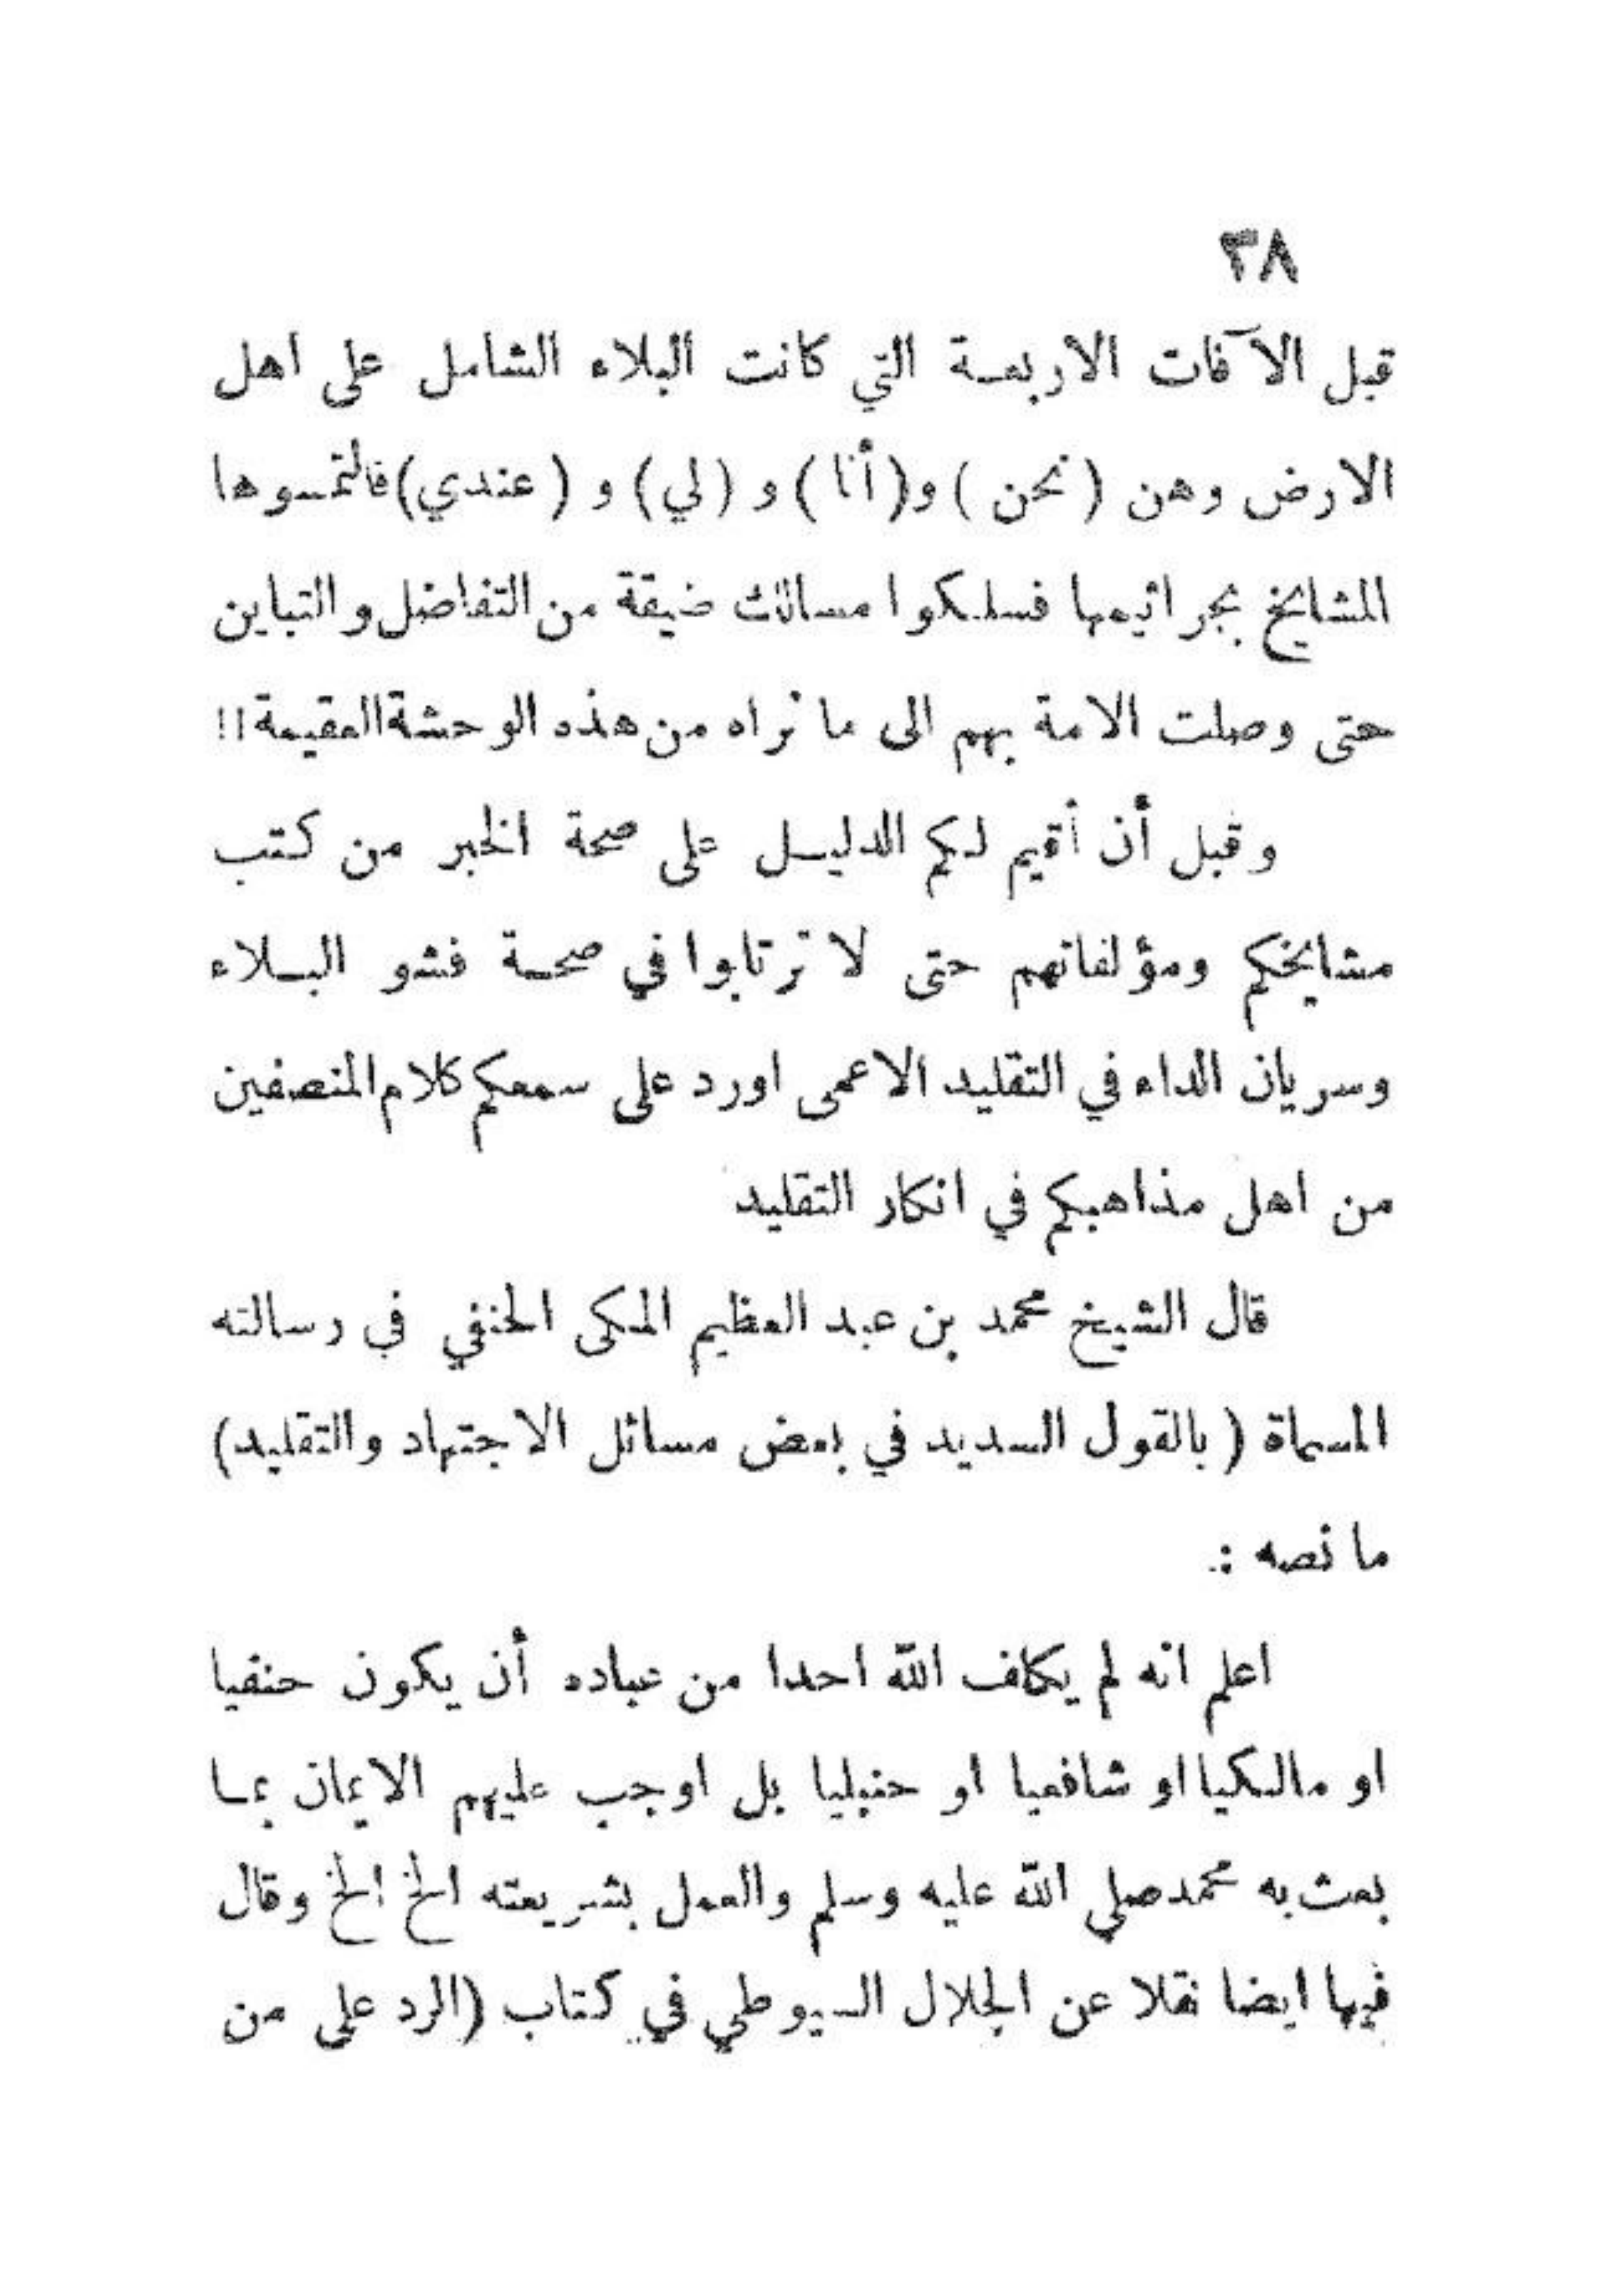 ٣٨
قبل الآفات الاربعة التي كانت البلاء الشامل على اهل
الارض وهن (نحن) و(أنا) و (لي) و (عندي) فالتمسوها
المشايخ بجراثيمها فسلكوا مسالك ضيقة من التفاضل والتباين
حتى وصلت الامة بهم الى ما نراه من هذه الوحشة العقيمة!!
وقبل أن أقيم لكم الدليل على صحة الخبر من كتب
مشايخكم ومؤلفاتهم حتى لا ترتابوا في صحة فشو البلاء
وسريان الداء في التقليد الاعمى اورد على سمعكم كلام المنصفين
من اهل مذاهبكم في انكار التقليد
قال الشيخ محمد بن عبد العظيم المكى الحنفي في رسالته
المسماة (بالقول السديد في بعض مسائل الاجتهاد والتقليد)
ما نصه :
اعلم انه لم يكلف الله احدا من عباده أن يكون حنفيا
او مالكيا او شافعيا او حنبليا بل اوجب عليهم الايمان بما
بعث به محمد صلي الله عليه وسلم والعمل بشريعته الخ الخ وقال
فيها ايضا نقلا عن الجلال السيوطي في كتاب (الرد على من